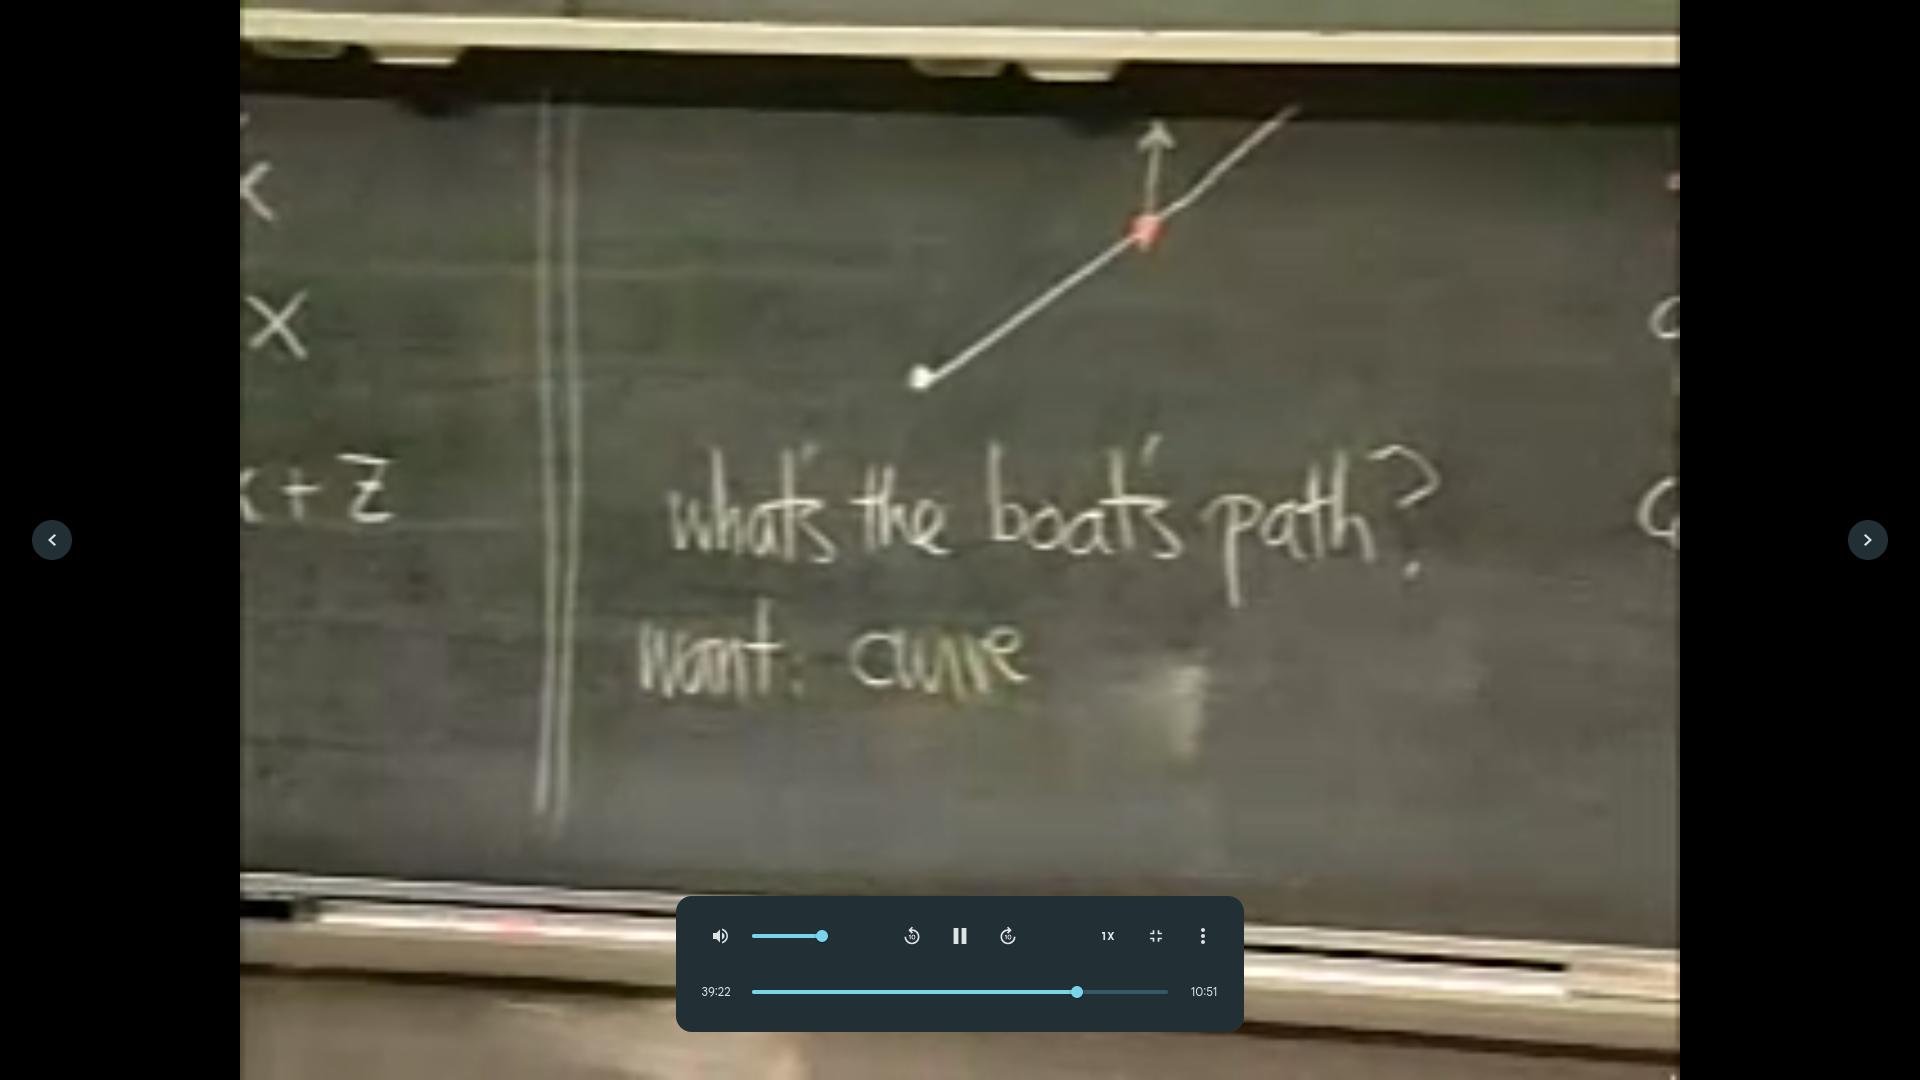 x
x + z
what's the boat's path?
want: curve
10 10 1X
39:22 10:51